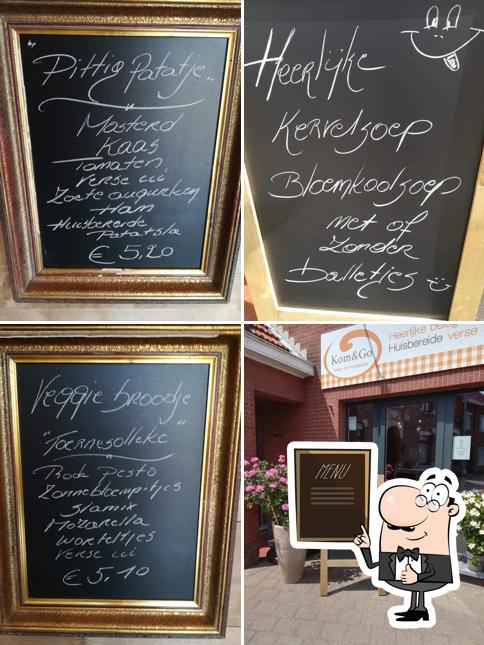 Pittig Patatje..
Mosterd
Kaas
Tomaten
Verse ui
Zoete augurken
Ham
Huisbereide
Patatsla
€ 5,20
Heerlijke
Kervelsoep
Bloemkoolsoep
met of
zonder
Balletjes
Veggie broodje
"Toernesolleke"
Rode pesto
Zonnebloempitjes
Slamix
Mozarella
Worteltjes
Verse ui
€ 5,10
Kom&Go
Heerlijke beleg
Huisbereide verse
MENU